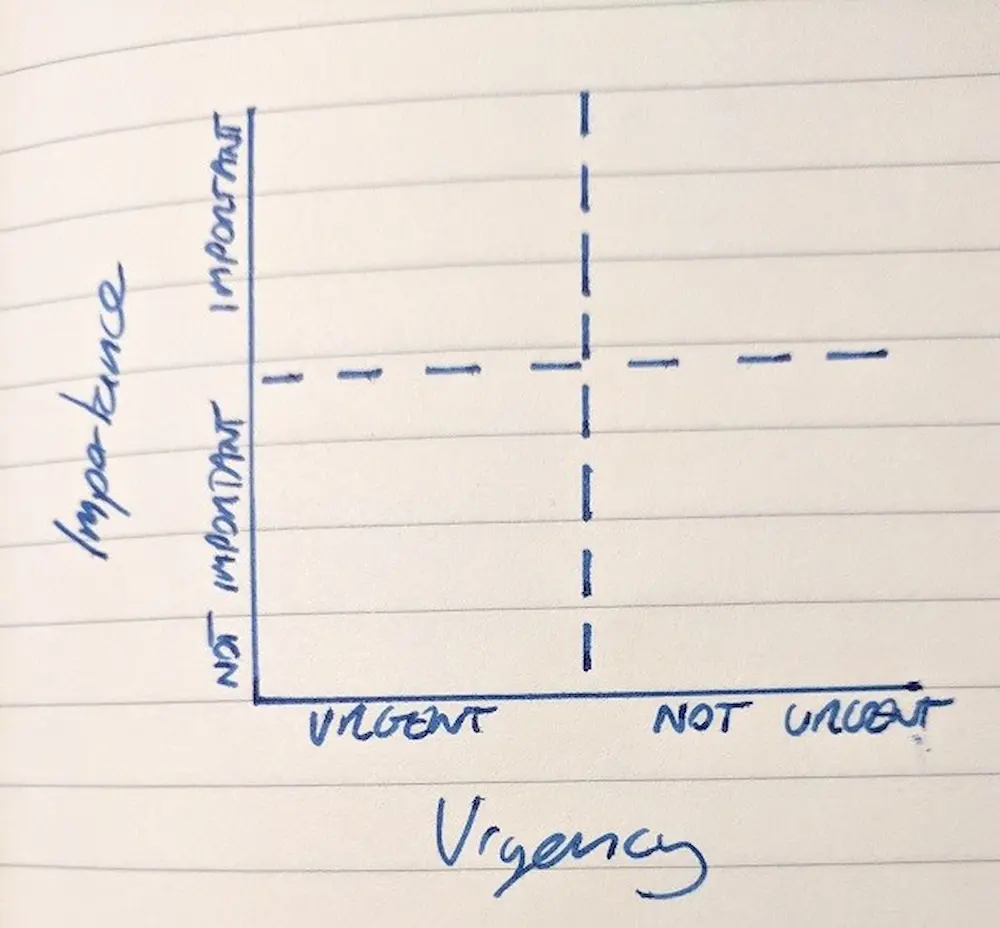 IMPORTANT
NOT IMPORTANT
Importance
URGENT
NOT URGENT
Urgency